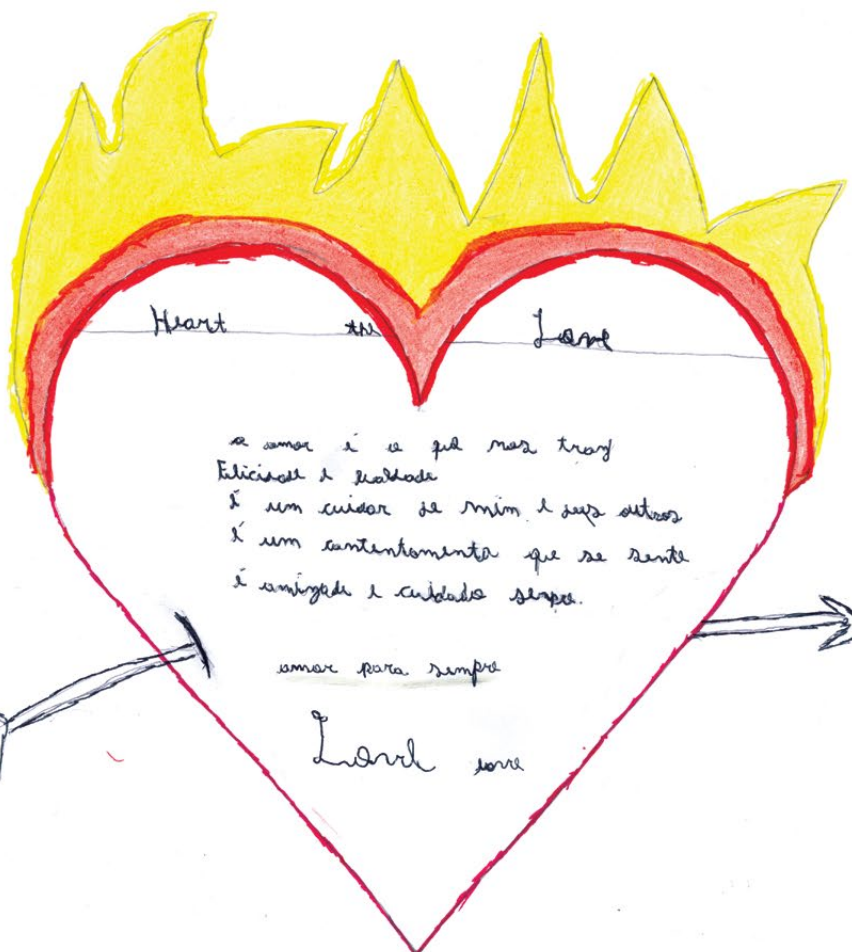 Heart the Love
o amor é o que nos traz
Felicidade e lealdade
é um cuidar de mim e dos outros
é um contentamento que se sente
é amizade e cuidado sempre.
amor para sempre
Love love